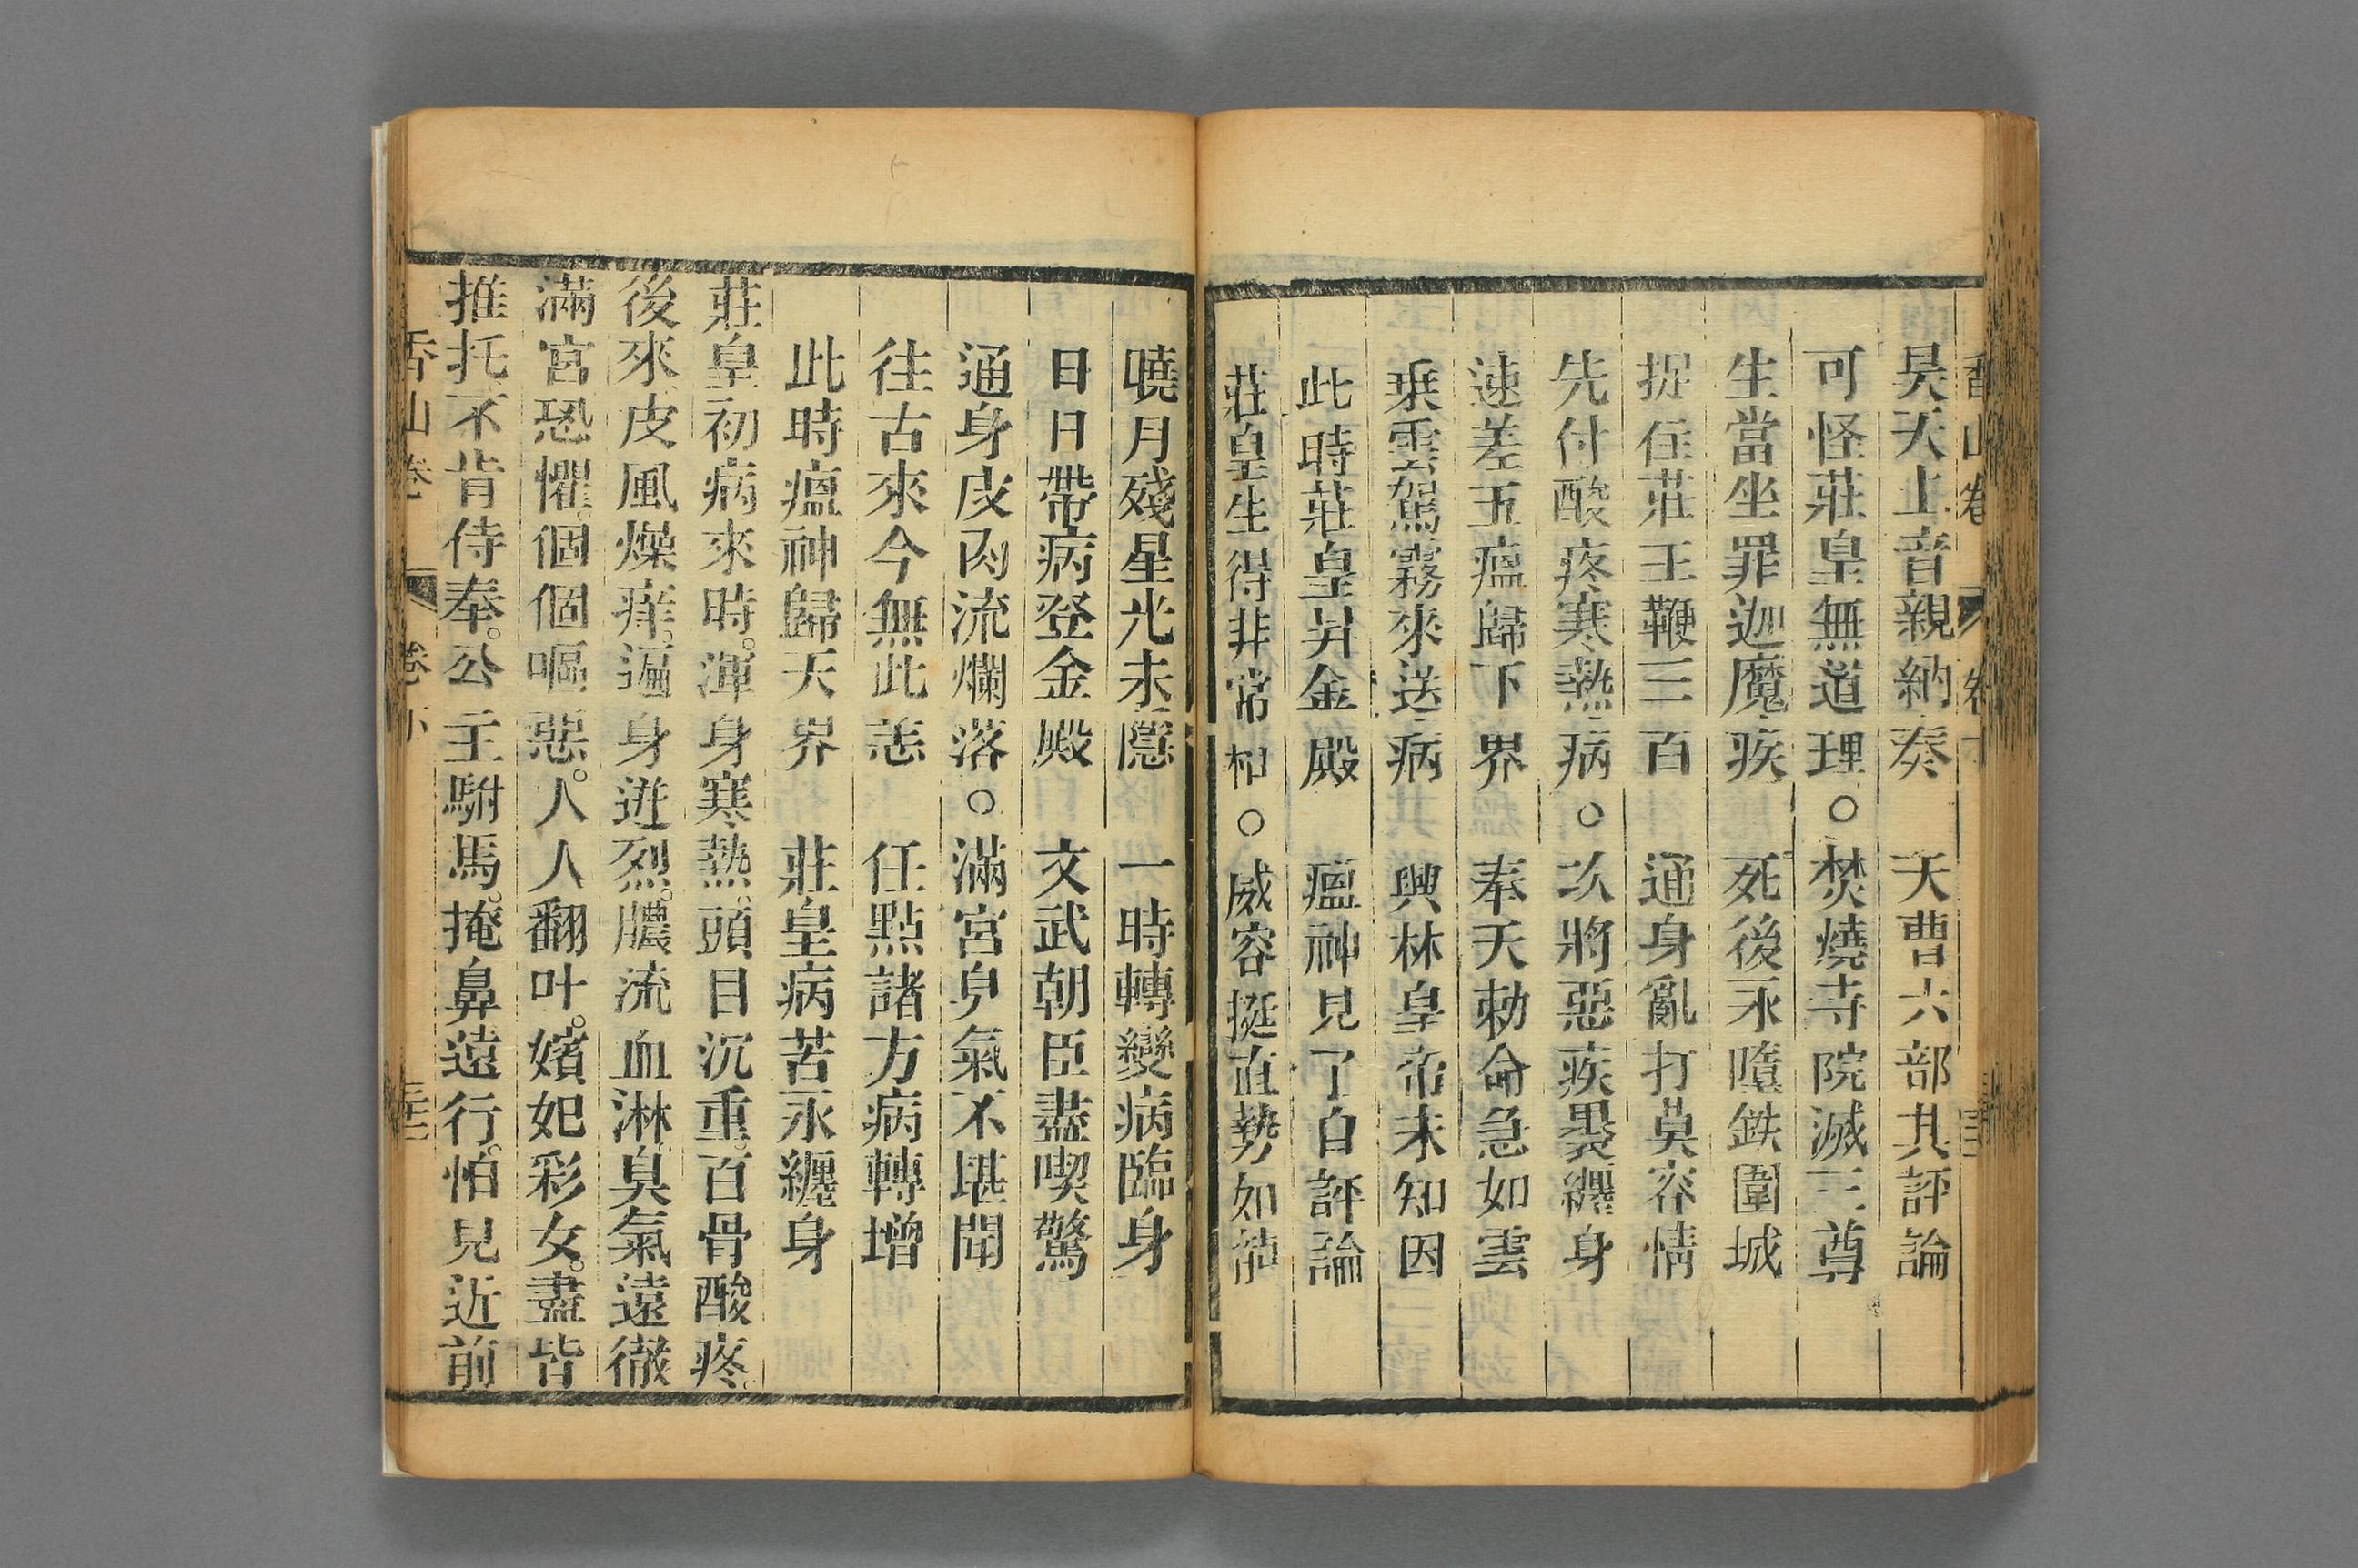 香山卷 卷下
昊天上音親納奏 天曹六部共評論
可怪莊皇無道理○焚燒寺院滅三尊
生當坐罪迦魔疾 死後永墮鉄圍城
捉住莊王鞭三百 通身亂打莫容情
先付酸疼寒熱病○次將惡疾褁纏身
速差五瘟歸下界 奉天勅命急如雲
乗雲駕霧來送病 興林皇帝未知因
此時莊皇昇金殿 瘟神見了自評論
莊皇生得非常相○威容挺直勢如龍
曉月殘星光未隱 一時轉變病臨身
日日帶病登金殿 文武朝臣盡喫驚
通身皮肉流爛落○滿宮臭氣不堪聞
往古來今無此恙 任點諸方病轉增
此時瘟神歸天界 莊皇病苦永纏身
莊皇初病來時。渾身寒熱。頭目沉重。百骨酸疼。
後來皮風燥痒。遍身迸烈。膿流血淋。臭氣遠徹
滿宮恐懼。個個嘔惡。人人翻叶。嬪妃彩女。盡皆
推托不肯侍奉。公主駙馬。掩鼻遠行。怕見近前
香山卷 卷下